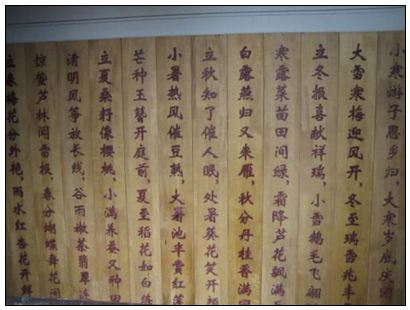 立春梅花分外艳，雨水红杏花开鲜
惊蛰芦林闻雷报，春分蝴蝶舞花间
清明风筝放长线，谷雨嫩茶翡翠连
立夏桑籽像樱桃，小满养蚕又种田
芒种玉簪开庭前，夏至稻花如白练
小暑热风催豆熟，大暑池半賞红莲
立秋知了催人眠，处暑葵花笑开颜
白露燕归又来雁，秋分丹桂香满园
寒露菜苗田间绿，霜降芦花飘满
立冬报喜献祥瑞，小雪鹅毛飞翩
大雪寒梅迎风开，冬至瑞雪兆丰
小寒游子思乡归，大寒岁底庆团